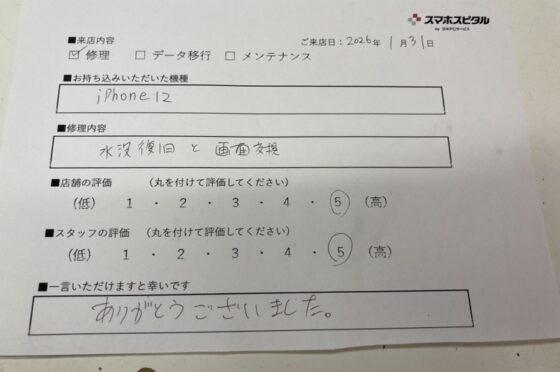 スマホスピタル
■来店内容
ご来店日：2026年 1月31日
☑ 修理 □ データ移行 □ メンテナンス
■お持ち込みいただいた機種
iPhone12
■修理内容
水没復旧と画面交換
■店舗の評価 （丸を付けて評価してください）
（低） 1 ・ 2 ・ 3 ・ 4 ・ 5 （高）
■スタッフの評価 （丸を付けて評価してください）
（低） 1 ・ 2 ・ 3 ・ 4 ・ 5 （高）
■一言いただけますと幸いです
ありがとうございました。